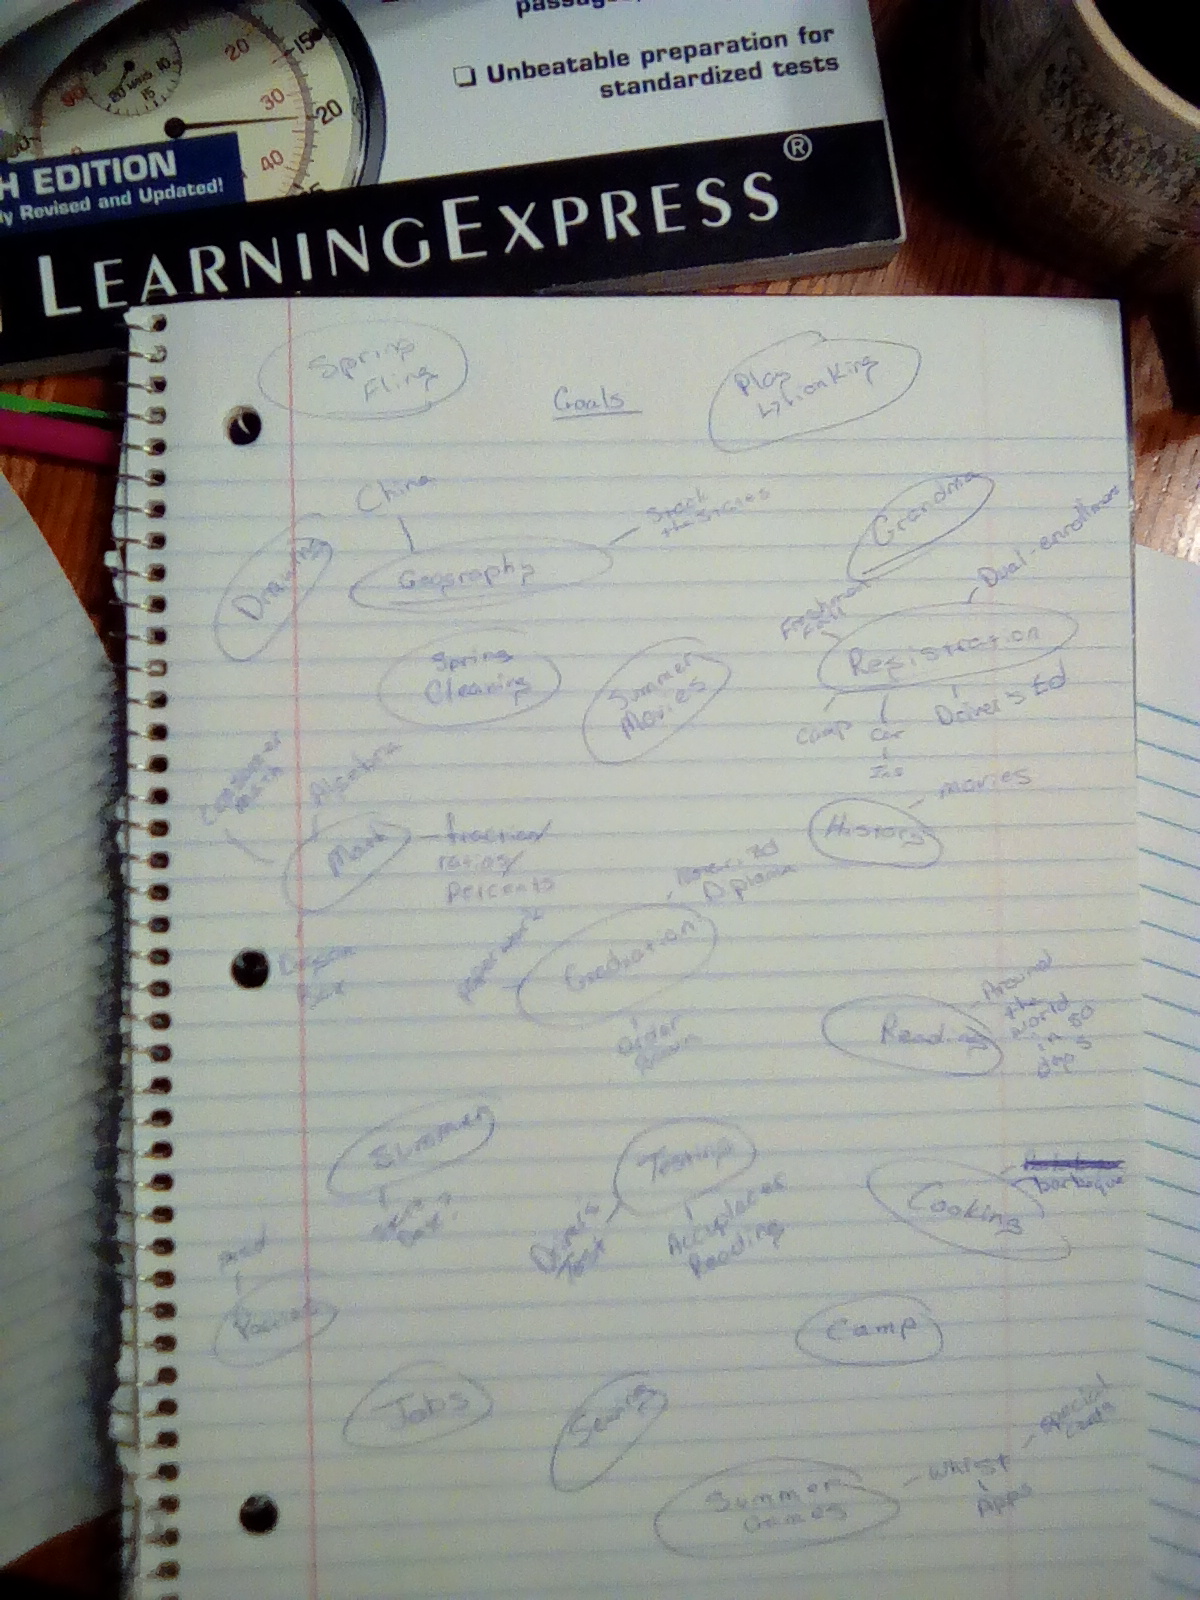 Unbeatable preparation for
standardized tests
20
15
30
20
40
H EDITION
ly Revised and Updated!
LEARNINGEXPRESS®
Spring
Fling
Goals
Play
King
China
Stack
the States
Grandma
Drawing
Geography
Dual-enrollment
Freshman
Fall
Registration
Spring
Cleaning
Summer
Movies
Camp
Car
Ins
Driver's Ed
Consumer
Math
Algebra
Math
fraction/
ratios/
Percents
History
movies
Notarized
Diploma
Paperwork
Graduation
order
Gown
Reading
Around
the
world
in 80
days
Summer
Testing
Driver's
Test
Accuplacer
Reading
Cooking
barbeque
Camp
Jobs
Sewing
Summer
Games
Whist
Special
Cards
Apps